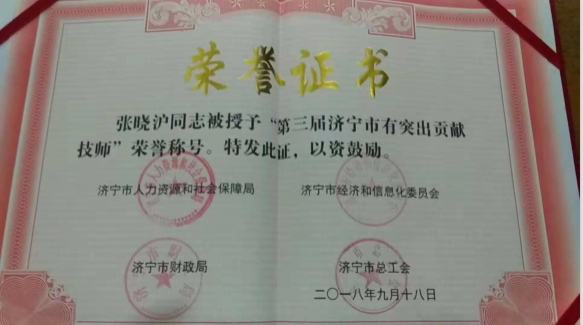 荣誉证书
张晓沪同志被授予“第三届济宁市有突出贡献
技师”荣誉称号。特发此证，以资鼓励。
济宁市人力资源和社会保障局 济宁市经济和信息化委员会
济宁市财政局 济宁市总工会
二〇一八年九月十八日